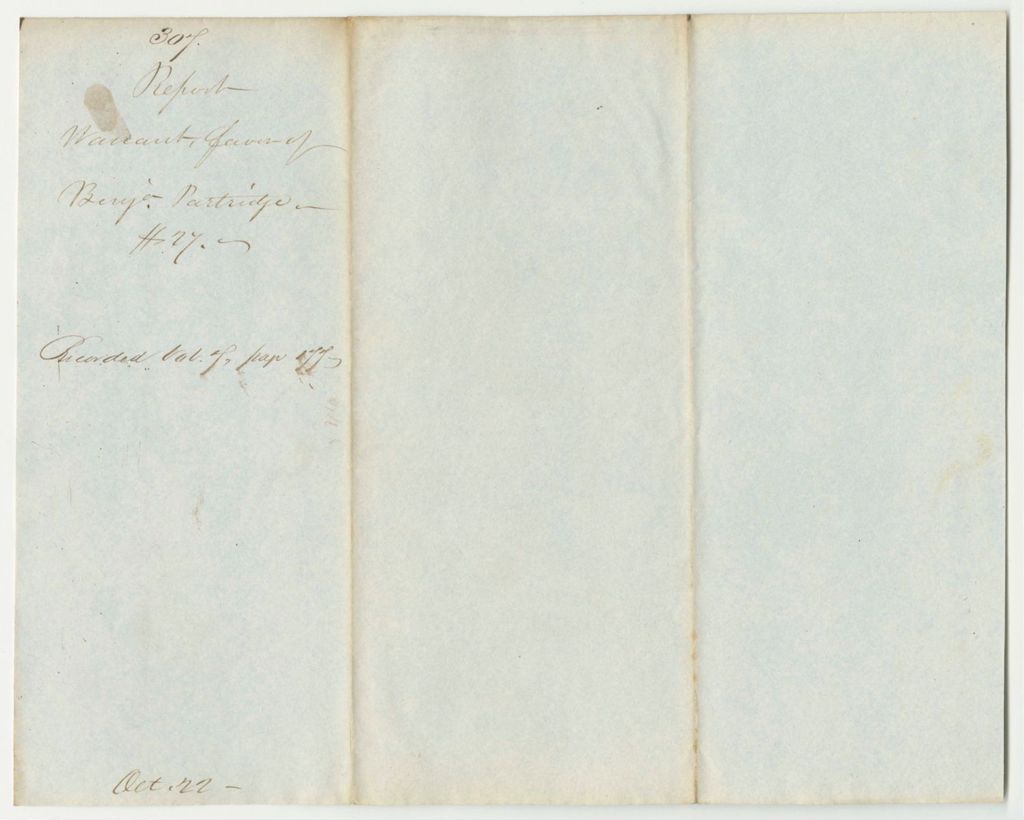 307.
Report
Warrant, favor of
Benj.a Partridge
$27.
Recorded Vol. 7, page 177
Oct. 22